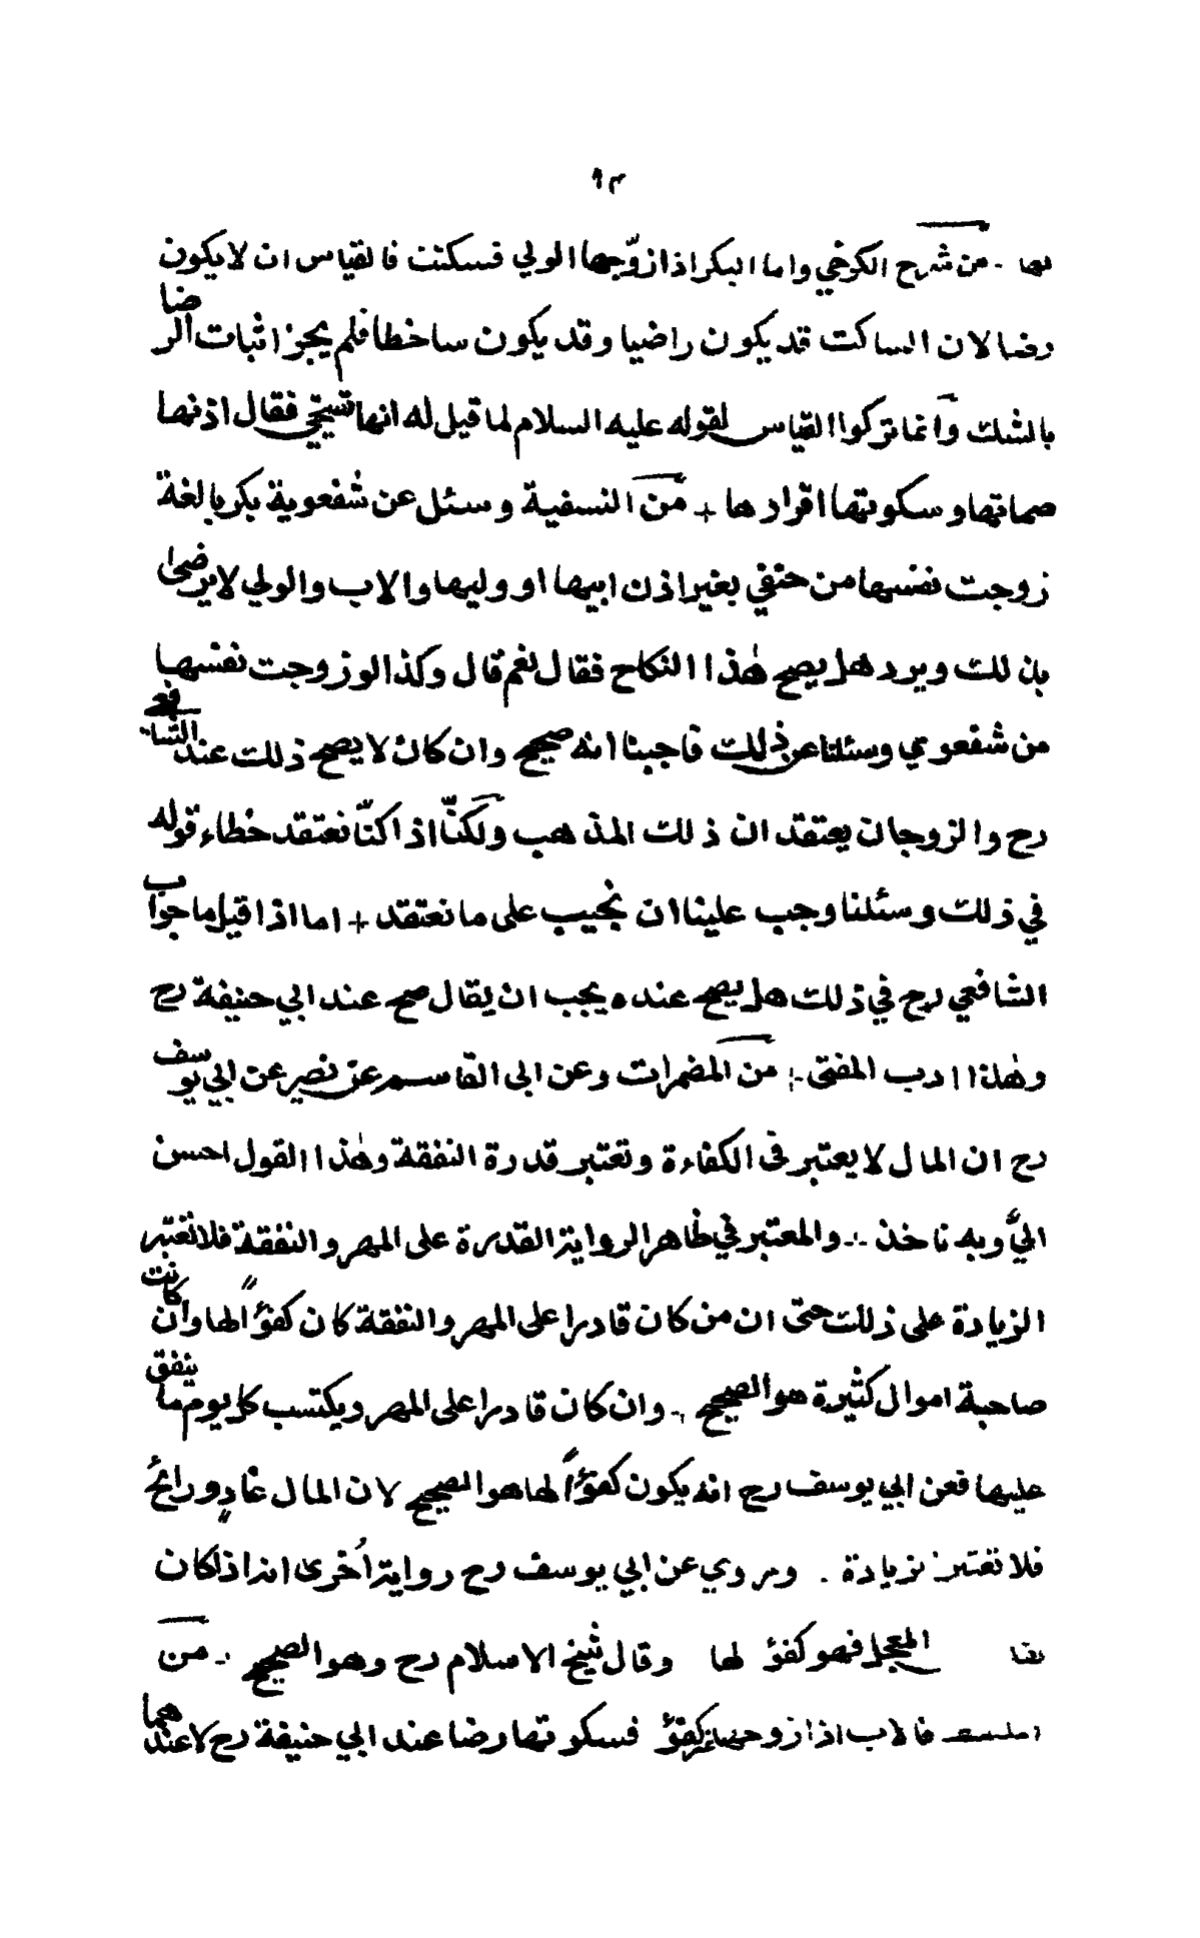 ٩٣
لها . من شرح الكرخي واما البكر اذا زوّجها الولي فسكتت فالقياس ان لا يكون
رضا لان الساكت قد يكون راضيا وقد يكون ساخطا فلم يجز اثبات الرضا
بالشك وانما تركوا القياس لقوله عليه السلام لما قيل له انها تستحي فقال اذنها
صماتها وسكوتها اقرارها + من النسفية وسئل عن شفعوية بكر بالغة
زوجت نفسها من حنفي بغير اذن ابيها او وليها والاب والولي لا يرضى
بذلك ويرد هل يصح هٰذا النكاح فقال نعم قال وكذا لو زوجت نفسها
من شفعوي وسئلنا عن ذلك فاجبنا انه صحيح وان كان لا يصح ذلك عند الشافعي
رح والزوجان يعتقدان ذلك المذهب ولكنّا اذا كنّا نعتقد خطاء قوله
في ذلك وسئلنا وجب علينا ان نجيب على ما نعتقد + اما اذا قيل ما جواب
الشافعي رح في ذلك هل يصح عنده يجب ان يقال صح عند ابي حنيفة رح
وهٰذا ادب المفتى . من المضمرات وعن ابى القاسم عن نصير عن ابي يوسف
رح ان المال لا يعتبر فى الكفاءة وتعتبر قدرة النفقة وهٰذا القول احسن
اليَّ وبه ناخذ .. والمعتبر في ظاهر الرواية القدرة على المهر والنفقة فلا تعتبر
الزيادة على ذلك حتى ان من كان قادرا على المهر والنفقة كان كفؤاً لها وان كانت
صاحبة اموال كثيرة هو الصحيح . وان كان قادرا على المهر ويكتسب كل يوم ما ينفق
عليها فعن ابي يوسف رح انه يكون كفؤاً لها هو الصحيح لان المال غادٍ ورائحٌ
فلا تعتبر زيادة . وروي عن ابي يوسف رح رواية اُخرى انه اذا كان
المعجل فهو كفؤ لها وقال شيخ الاسلام رح وهو الصحيح . من
فالاب اذا زوجها غير كفؤ فسكوتها رضا عند ابي حنيفة رح لا عندهما